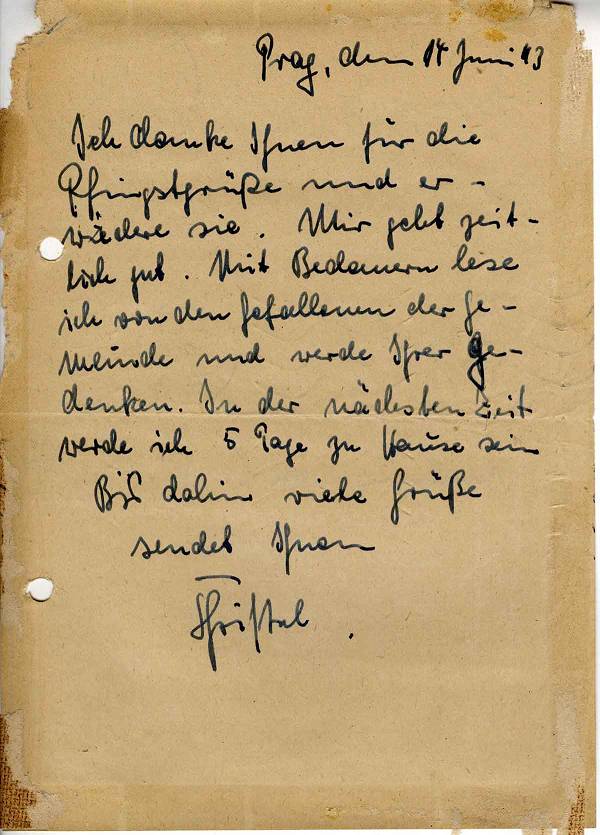 Prag, den 14 Juni 43
Ich danke Ihnen für die
Pfingstgrüße und er-
widere sie. Mir geht zeit-
lich gut. Mit Bedauern lese
ich von den Gefallenen der Ge-
meinde und werde Ihrer ge-
denken. In der nächsten Zeit
werde ich 5 Tage zu Hause sein
Bis dahin viele Grüße
sendet Ihnen